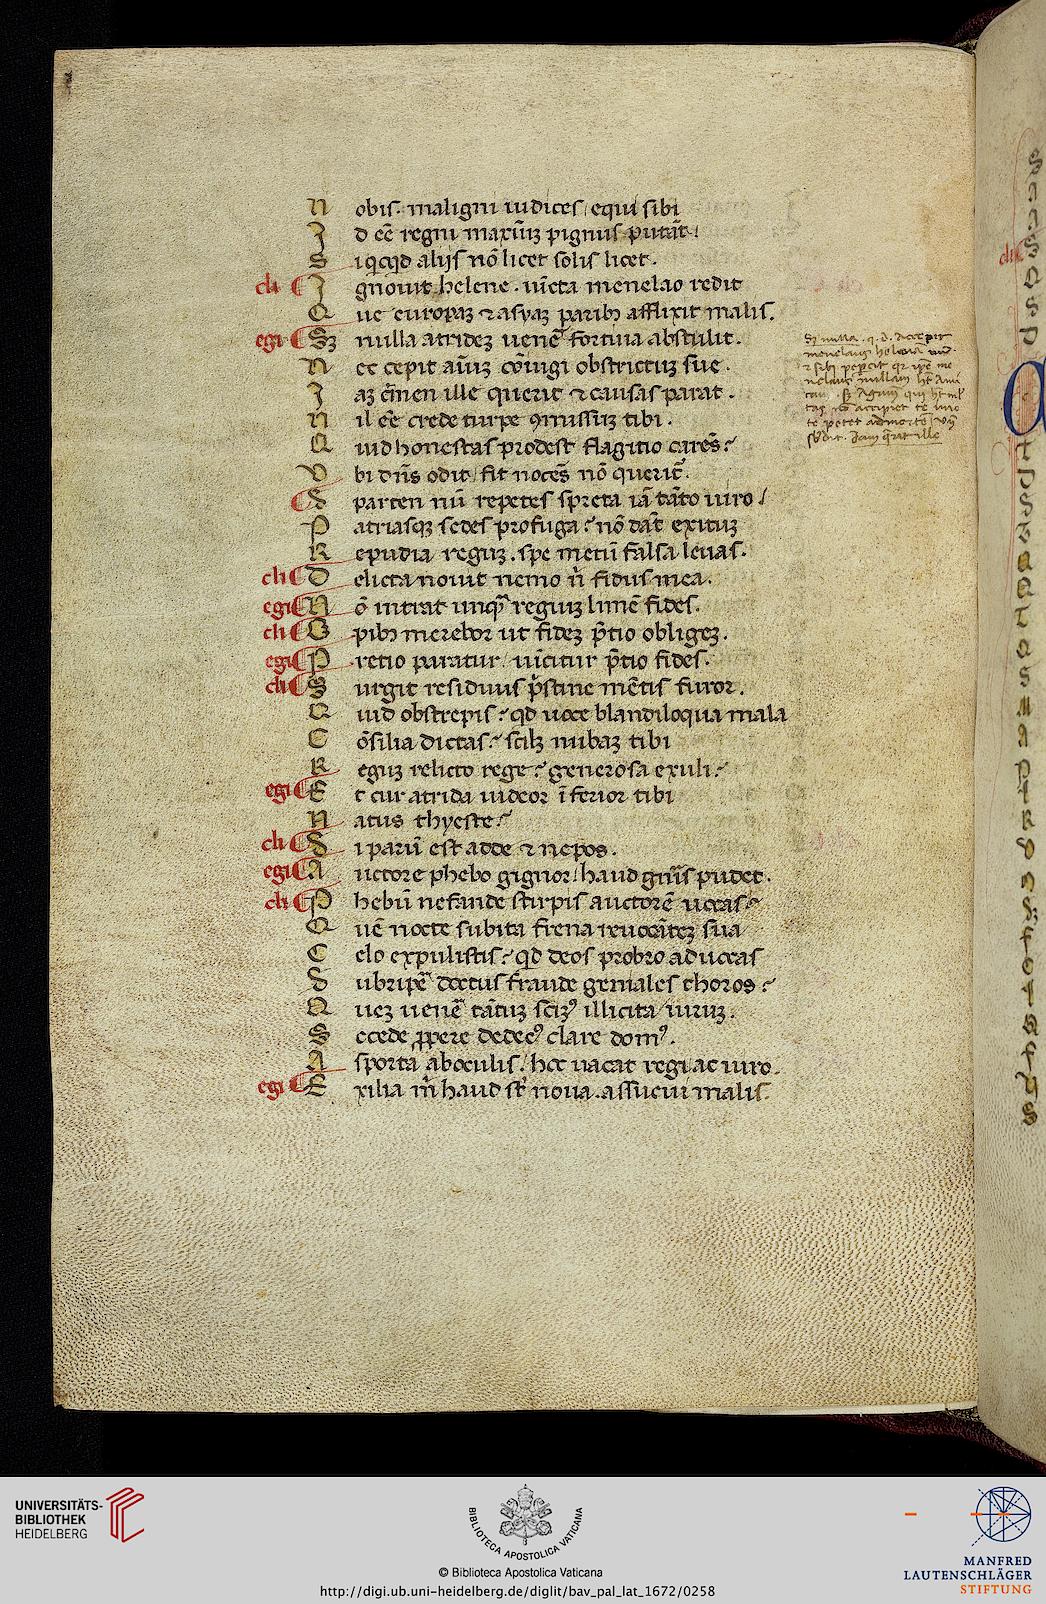 N obis. maligni iudices equi sibi
I d eē regni maximū pignus putāt.
S iq̄cq̄d alijs nō licet solis licet.
cli I gnouit helene. uīcta menelao redit
Q ue europaꝫ ⁊ asyaꝫ paribꝫ afflixit malis.
egi Sꝫ nulla atrideꝫ ueneꝰ fortiua abstulit.
N ec cepit aīuꝫ cōiugi obstrictuꝫ sue.
I aꝫ cͥmen ille querit ⁊ causas parat.
N il eē crede turpe ꝯmissuꝫ tibi.
Q uid honestas prodest flagitio carēs?
V bi dn̄s odit, fit nocēs nō querit᷑.
S parten nū repetes spreta iā tāto uiro/
P atriasqꝫ sedes profuga? nō dāt exituꝫ
R epudia reguꝫ. spe metū falsa leuas.
cli D elicta nouit nemo nͥ fidus mea.
egi N ō intrat unqͣ reguꝫ limē fides.
cli O pibꝫ merebor ut fideꝫ p̄tio obligeꝫ.
egi P retio paratur uīcitur p̄tio fides.
cli S urgit residuus pͥstine mētis furor.
Q uid obstrepis? qd uoce blandiloqua mala
C ōsilia dictas? scilꝫ nubaꝫ tibi
R eguꝫ relicto rege? generosa exuli?
egi E t cur atrida uideor īferior tibi
N atus thyeste?
cli S i parū est adde ⁊ nepos.
egi A uctore phebo gignor/ haud gnͥis pudet.
cli P hebū nefande stirpis auctorē uocas?
Q uē nocte subita frena reuocāteꝫ sua
C elo expulistis? qd deos probro aduocas
S ubripeͤ doctus fraude geniales thoros?
Q ueꝫ ueneͤ tātuꝫ scīꝰ illicita uiruꝫ.
S ecede ꝓpere dedecꝰ clare domꝰ.
A sporta aboculis/ hec uacat regi ac uiro.
egi E xilia m̄ haud st̄ noua. assueui malis.
Sꝫ nulla .q.d. Accepit
menelaus helena
⁊ sibi pepercit qr ipē me
nelaus nullam ht Ami
cam. sꝫ Agam qui ht
tas nō accipiet te īmo
te petet admortē
Jam q̄rat ille
cli
UNIVERSITÄTS-
BIBLIOTHEK
HEIDELBERG
BIBLIOTECA APOSTOLICA VATICANA
© Biblioteca Apostolica Vaticana
http://digi.ub.uni-heidelberg.de/diglit/bav_pal_lat_1672/0258
MANFRED
LAUTENSCHLÄGER
STIFTUNG